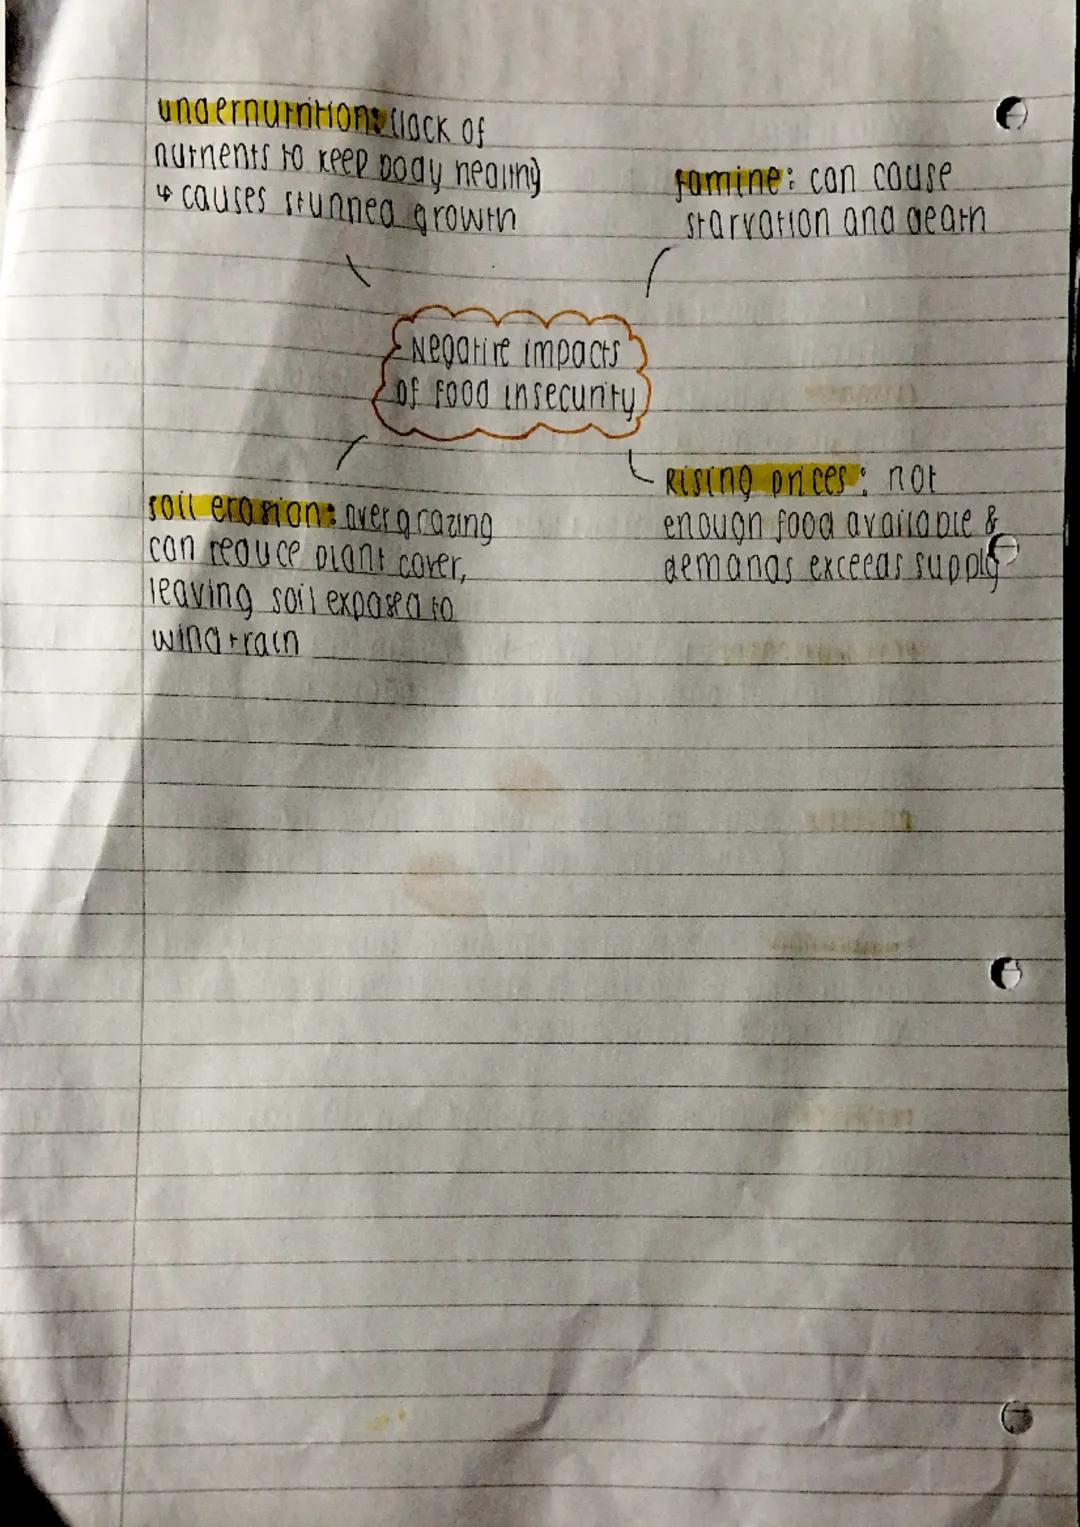 undernutrition: lack of
nutrients to keep body healthy
↳ causes stunned growth
famine: can cause
starvation and death
Negative impacts
of food insecurity
soil erosion: overgrazing
can reduce plant cover,
leaving soil exposed to
wind + rain
Rising prices: not
enough food available &
demands exceeds supply